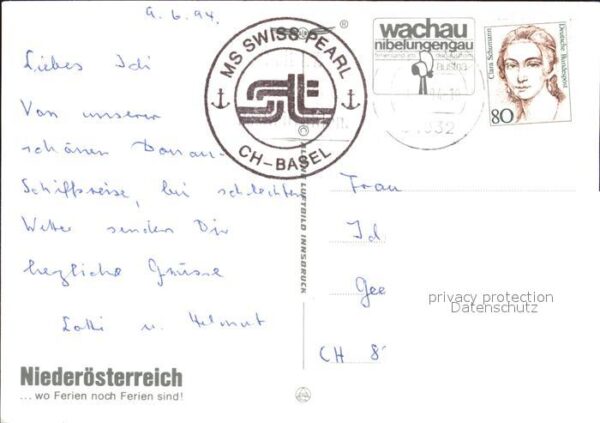 9.6.94.
Liebes Idi
Von unserer
schönen Donau-
Schiffsreise, bei schlechten
Wetter senden Dir
herzliche Grüsse
Lotti u. Helmut
Niederösterreich
... wo Ferien noch Ferien sind!
MS SWISS PEARL
CH-BASEL
wachau
nibelungengau
austria
Clara Schumann
Deutsche Bundespost
80
ALPINE LUFTBILD INNSBRUCK
Frau
Id
Gee
CH 8
privacy protection
Datenschutz